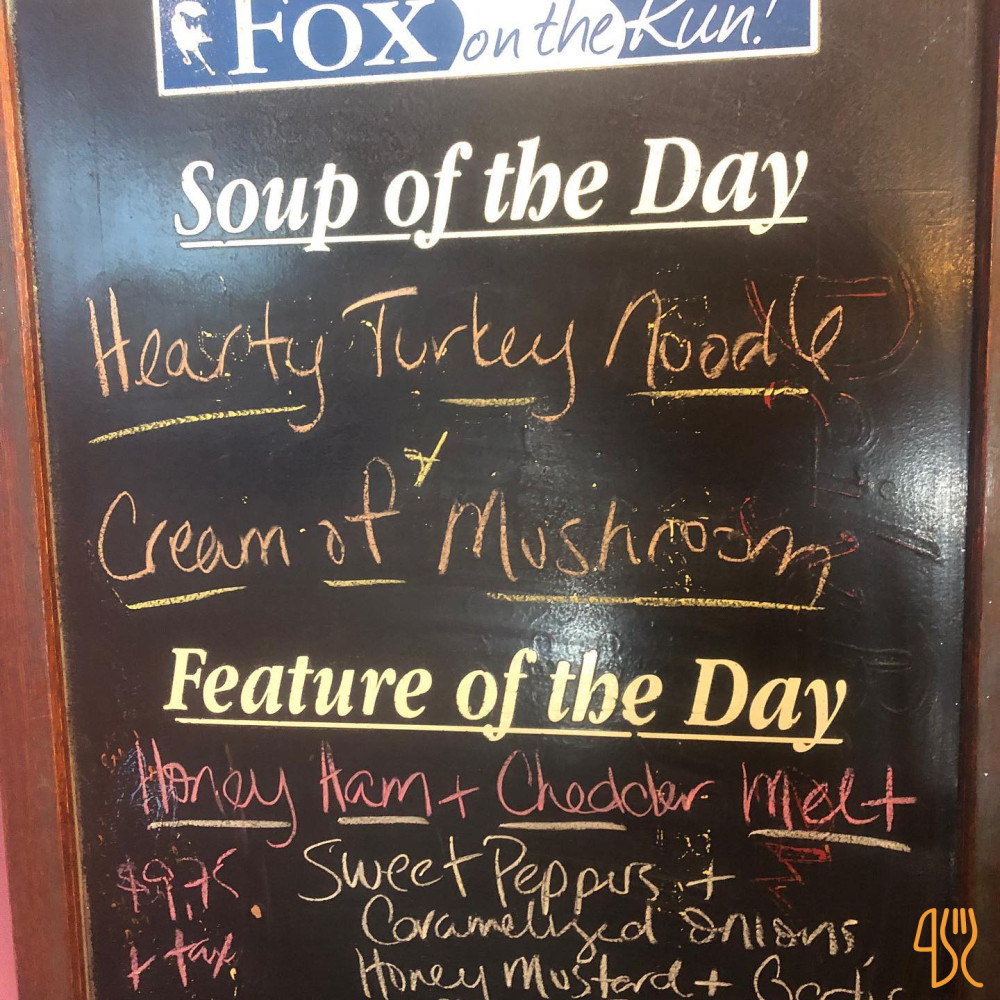 Fox on the Run!
Soup of the Day
Hearty Turkey Noodle
+
Cream of Mushroom
Feature of the Day
Honey Ham + Chedder Melt
$9.75 Sweet Peppers +
Caramelized Onions,
+ tax Honey Mustard +